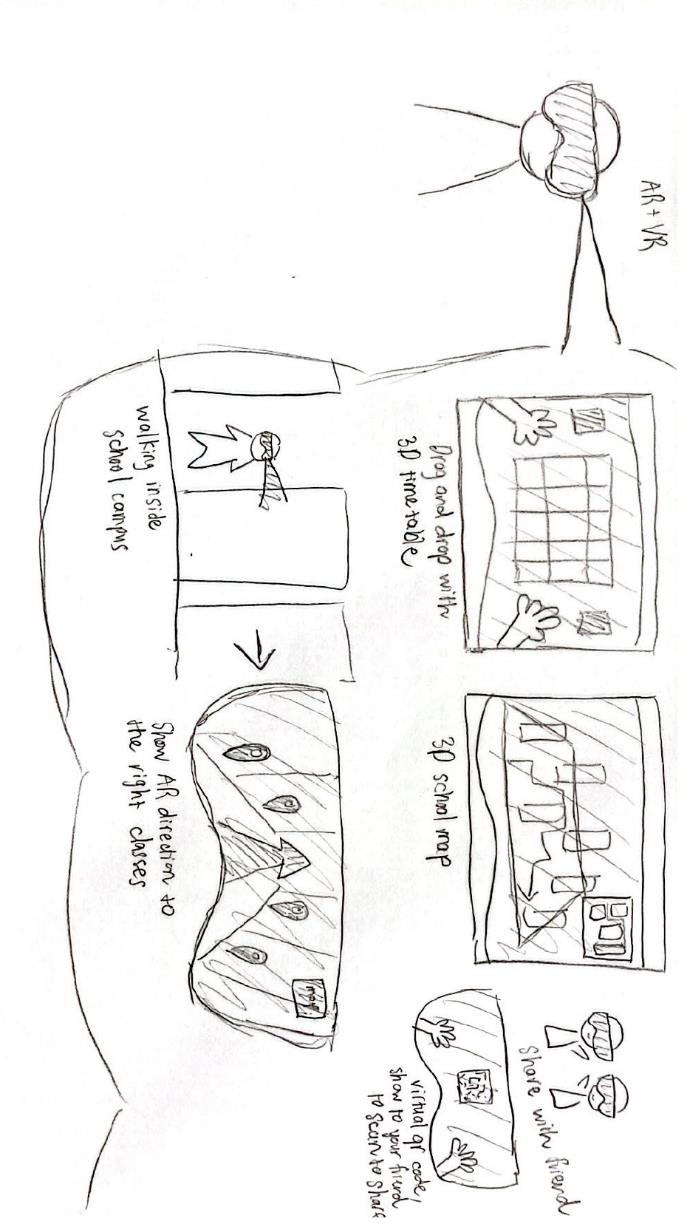 AR + VR
Drag and drop with
3D timetable
3D school map
Share with friend
virtual qr code,
show to your friend
to scan to share
walking inside
school campus
Show AR direction to
the right classes
map